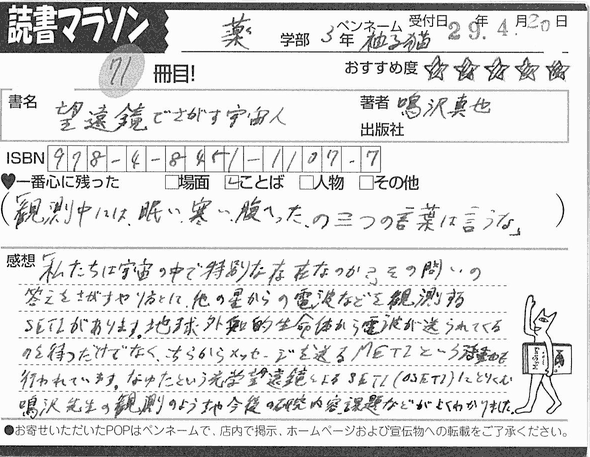 読書マラソン 薬学部 3年 ペンネーム 柚子猫 受付日 29年4月20日
71 冊目! おすすめ度 ☆☆☆☆☆
書名 望遠鏡でさがす宇宙人 著者 鳴沢真也
出版社
ISBN 978-4-8451-1107-7
♥一番心に残った □場面 ☑ことば □人物 □その他
(「観測中には、眠い、寒い、腹へった、の三つの言葉は言うな」)
感想 「私たちは宇宙の中で特別な存在なのか?」その問いの
答えをさがすやり方として、他の星からの電波などを観測する
SETIがあります。地球外知的生命体から電波が送られてくる
のを待つだけでなく、こちらからメッセージを送るMETIという活動も
行われています。なゆたという光学望遠鏡によるSETI(OSETI)にとりくむ
鳴沢先生の観測のようすや今後の研究内容課題などがよくわかりました。
●お寄せいただいたPOPはペンネームで、店内で掲示、ホームページおよび宣伝物への転載をご了承ください。